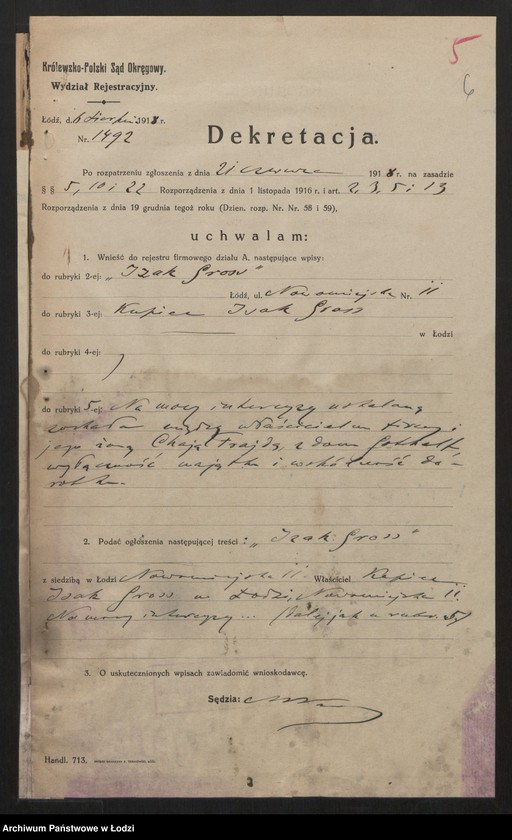 5
6
Królewsko-Polski Sąd Okręgowy.
Wydział Rejestracyjny.
Łódź, d. 6 sierpn. 1918 r.
Nr. 1492
Dekretacja.
Po rozpatrzeniu zgłoszenia z dnia 21 czerwca 1918 r. na zasadzie
§ § 5, 10 i 22 Rozporządzenia z dnia 1 listopada 1916 r. i art. 2, 3, 5 i 13
Rozporządzenia z dnia 19 grudnia tegoż roku (Dzien. rozp. Nr. Nr. 58 i 59),
uchwalam:
1. Wnieść do rejestru firmowego działu A. następujące wpisy:
do rubryki 2-ej: „Izak Gross"
Łódź, ul. Nowomiejska Nr. 11
do rubryki 3-ej: Kupiec Izak Gross
w Łodzi
do rubryki 4-ej:
do rubryki 5-ej: Na mocy intercyzy ustaloną
została między właścicielem firmy i
jego żoną Chają Frajdą z domu
wyłączność majątku i wspólność do-
robku.
2. Podać ogłoszenia następującej treści: „Izak Gross"
z siedzibą w Łodzi Nowomiejska 11. Właściciel Kupiec
Izak Gross w Łodzi, Nowomiejska 11.
Na mocy intercyzy ... (dalej jak w rubr. 5)
3. O uskutecznionych wpisach zawiadomić wnioskodawcę.
Sędzia:
Handl. 713.
Archiwum Państwowe w Łodzi